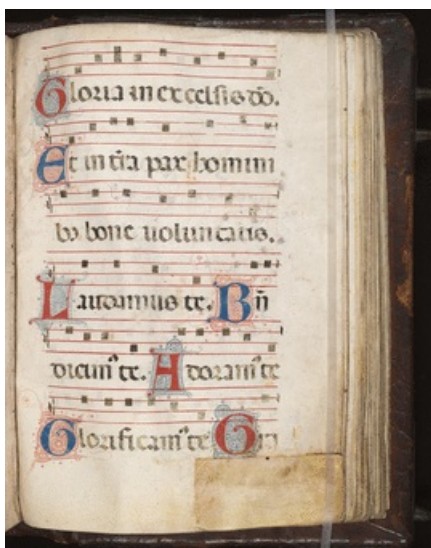 Gloria in excelsis dō.
Et in tr̄a pax homini
bꝰ bone uoluntatis.
Laudamus te. Bn̄
dicimꝰ te. Adoramꝰ te
Glorificamꝰ te G